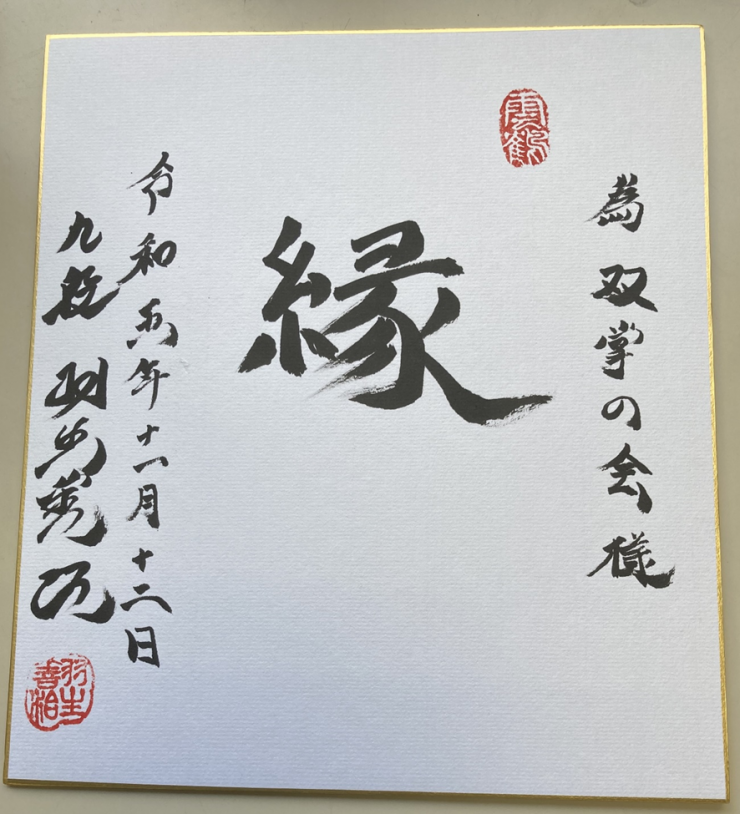 為 双掌の会 様
雲鶴
縁
令和五年十一月十二日
九段 羽生善治
羽生善治